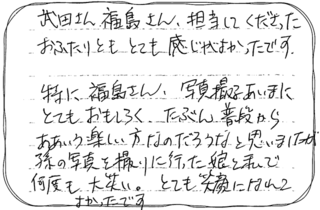 武田さん 福島さん、担当してくださった
おふたりとも とても 感じがよかったです
特に 福島さん、写真撮るあいまに
とてもおもしろく たぶん、普段から
ああいう楽しい方なのだろうなと思いましたが
孫の写真を撮りに行った娘と私で
何度も 大笑い。 とても 笑顔になれて
よかったです